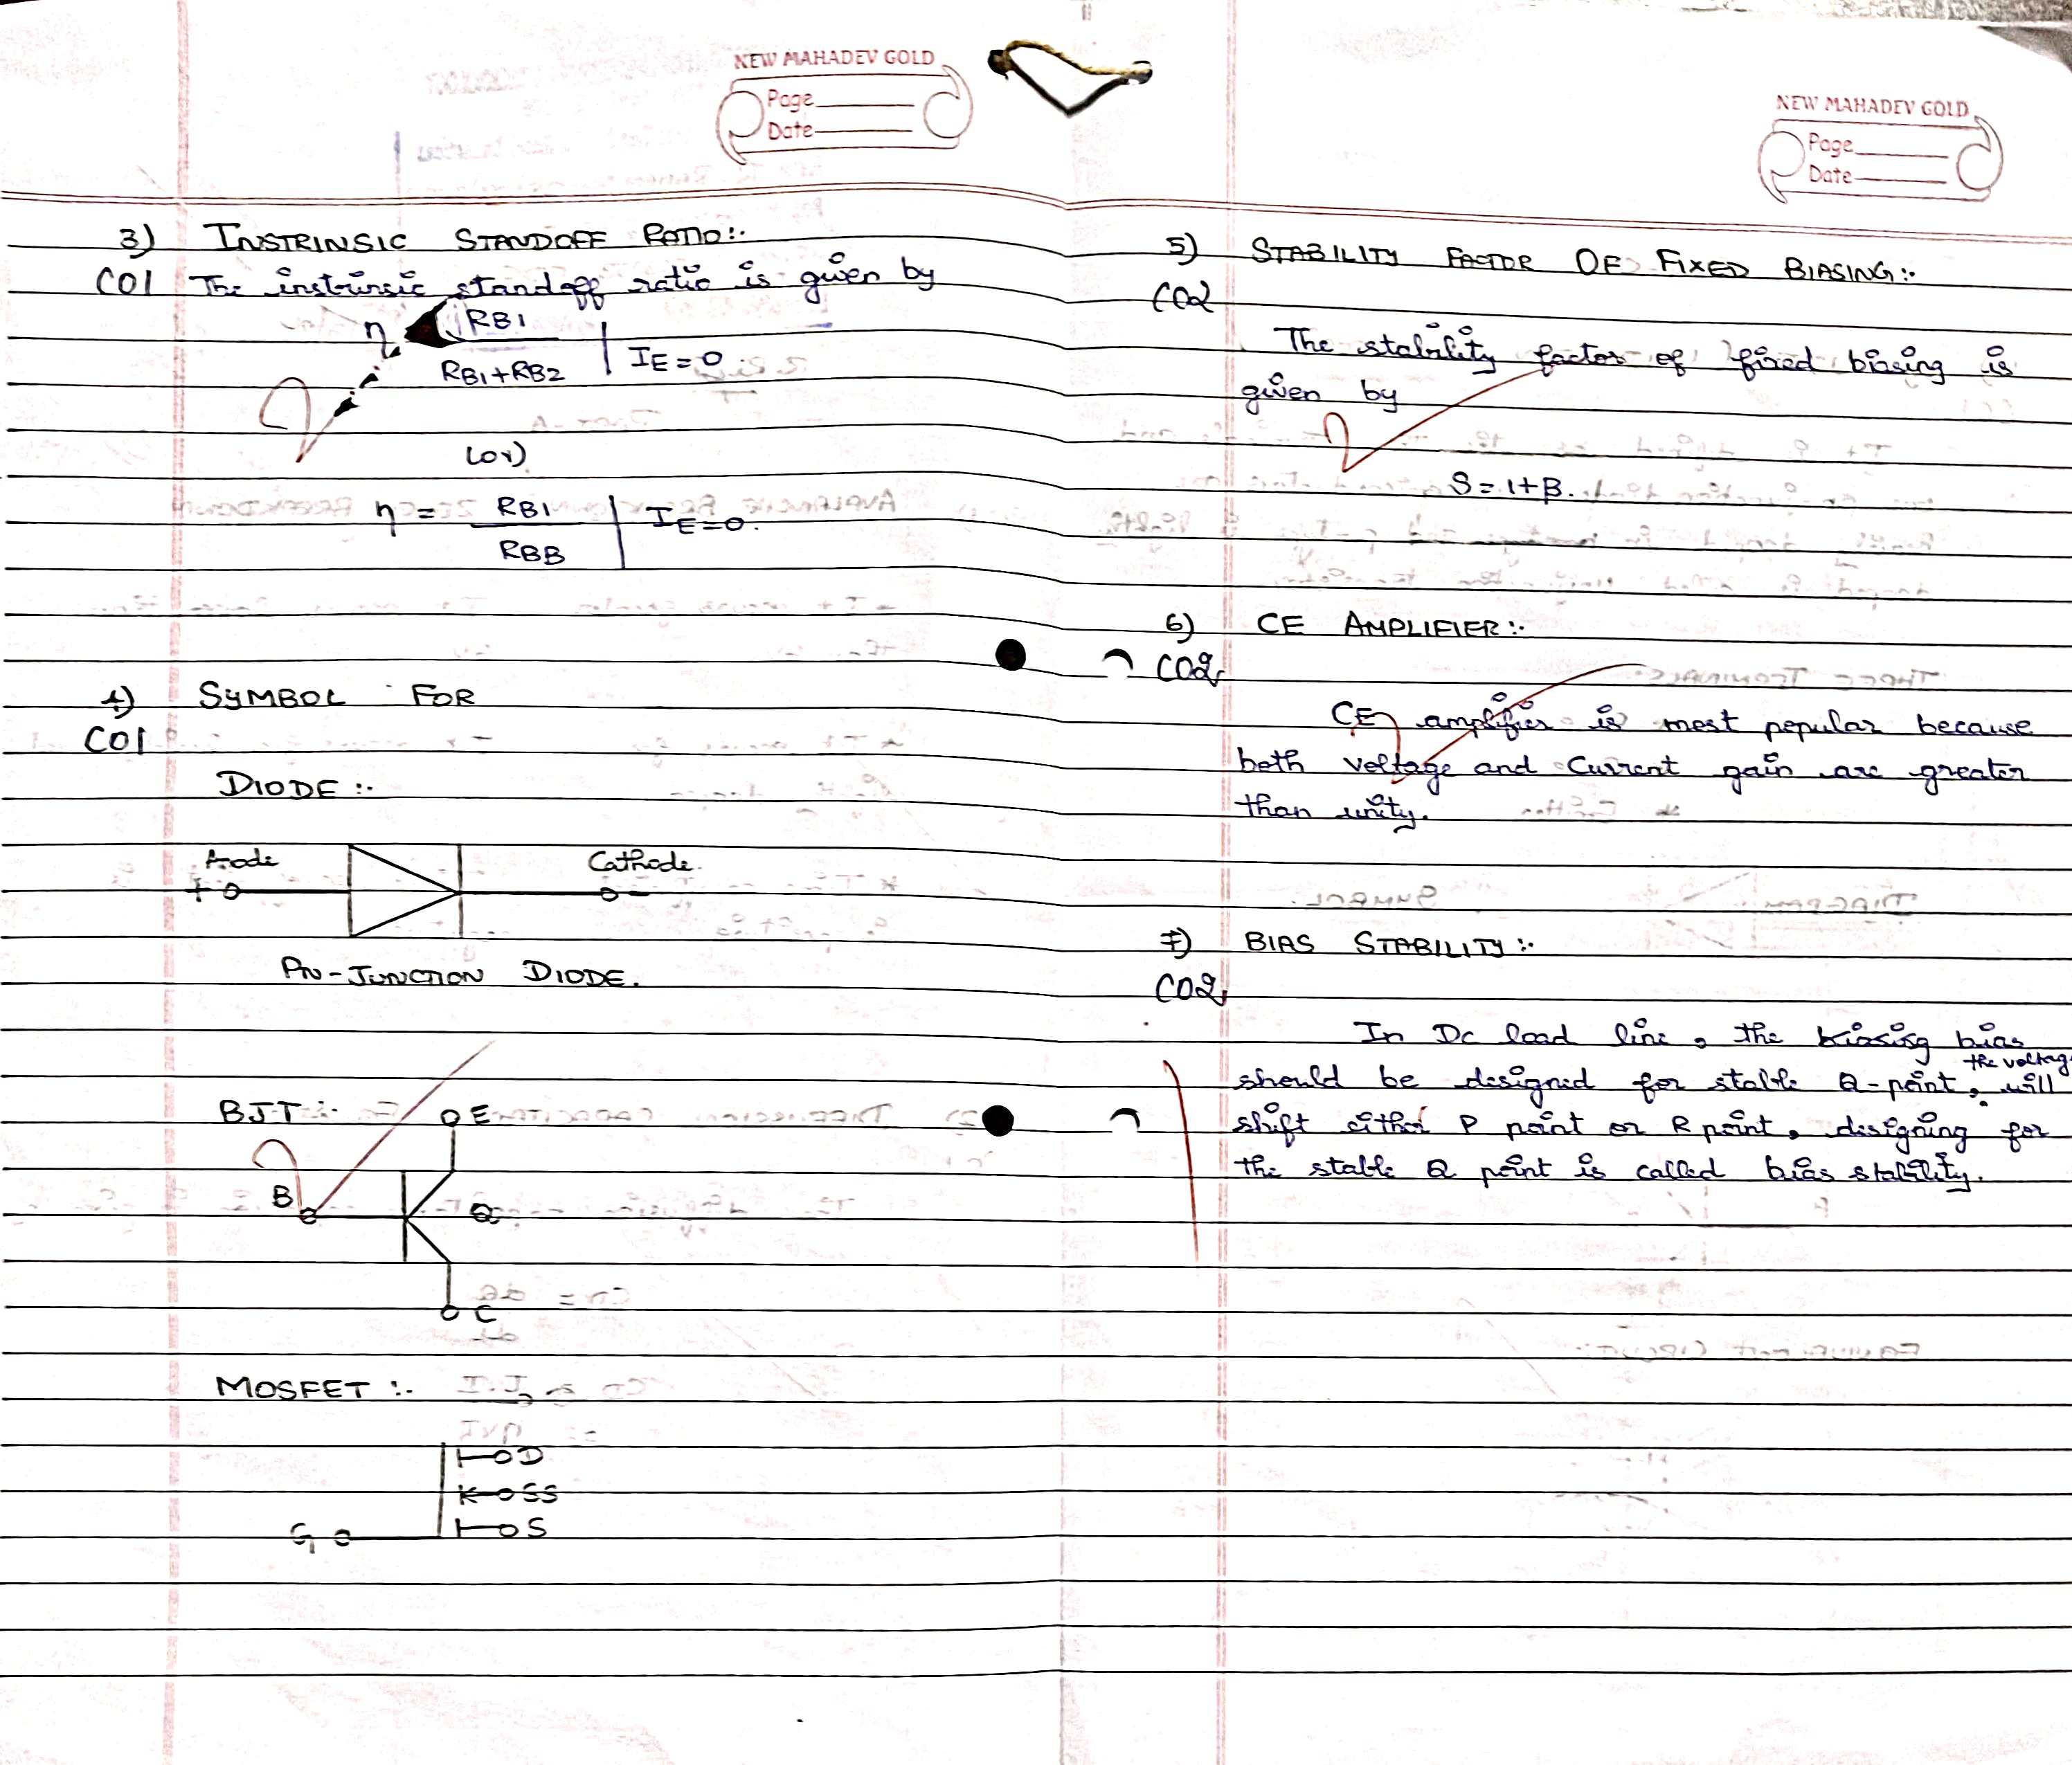 NEW MAHADEV GOLD
Page
Date
3) INSTRINSIC STANDOFF RATIO:.
CO1 The instrinsic standoff ratio is given by
η RB1
RB1+RB2 | IE=0.
(or)
η = RB1 | IE=0.
RBB
4) SYMBOL FOR
CO1
DIODE :.
Anode Cathode.
+ -
PN-JUNCTION DIODE.
BJT :. E
B
C
MOSFET :.
D
SS
G S
NEW MAHADEV GOLD
Page
Date
5) STABILITY FACTOR OF FIXED BIASING:.
CO2
The stability factor of fixed biasing is
given by
S=1+β.
6) CE AMPLIFIER:.
CO2
CE amplifier is most popular because
both voltage and current gain are greater
than unity.
7) BIAS STABILITY:.
CO2
In Dc load line, the bias
the voltag
should be designed for stable Q-point, will
shift either P point or R point, designing for
the stable Q point is called bias stability.